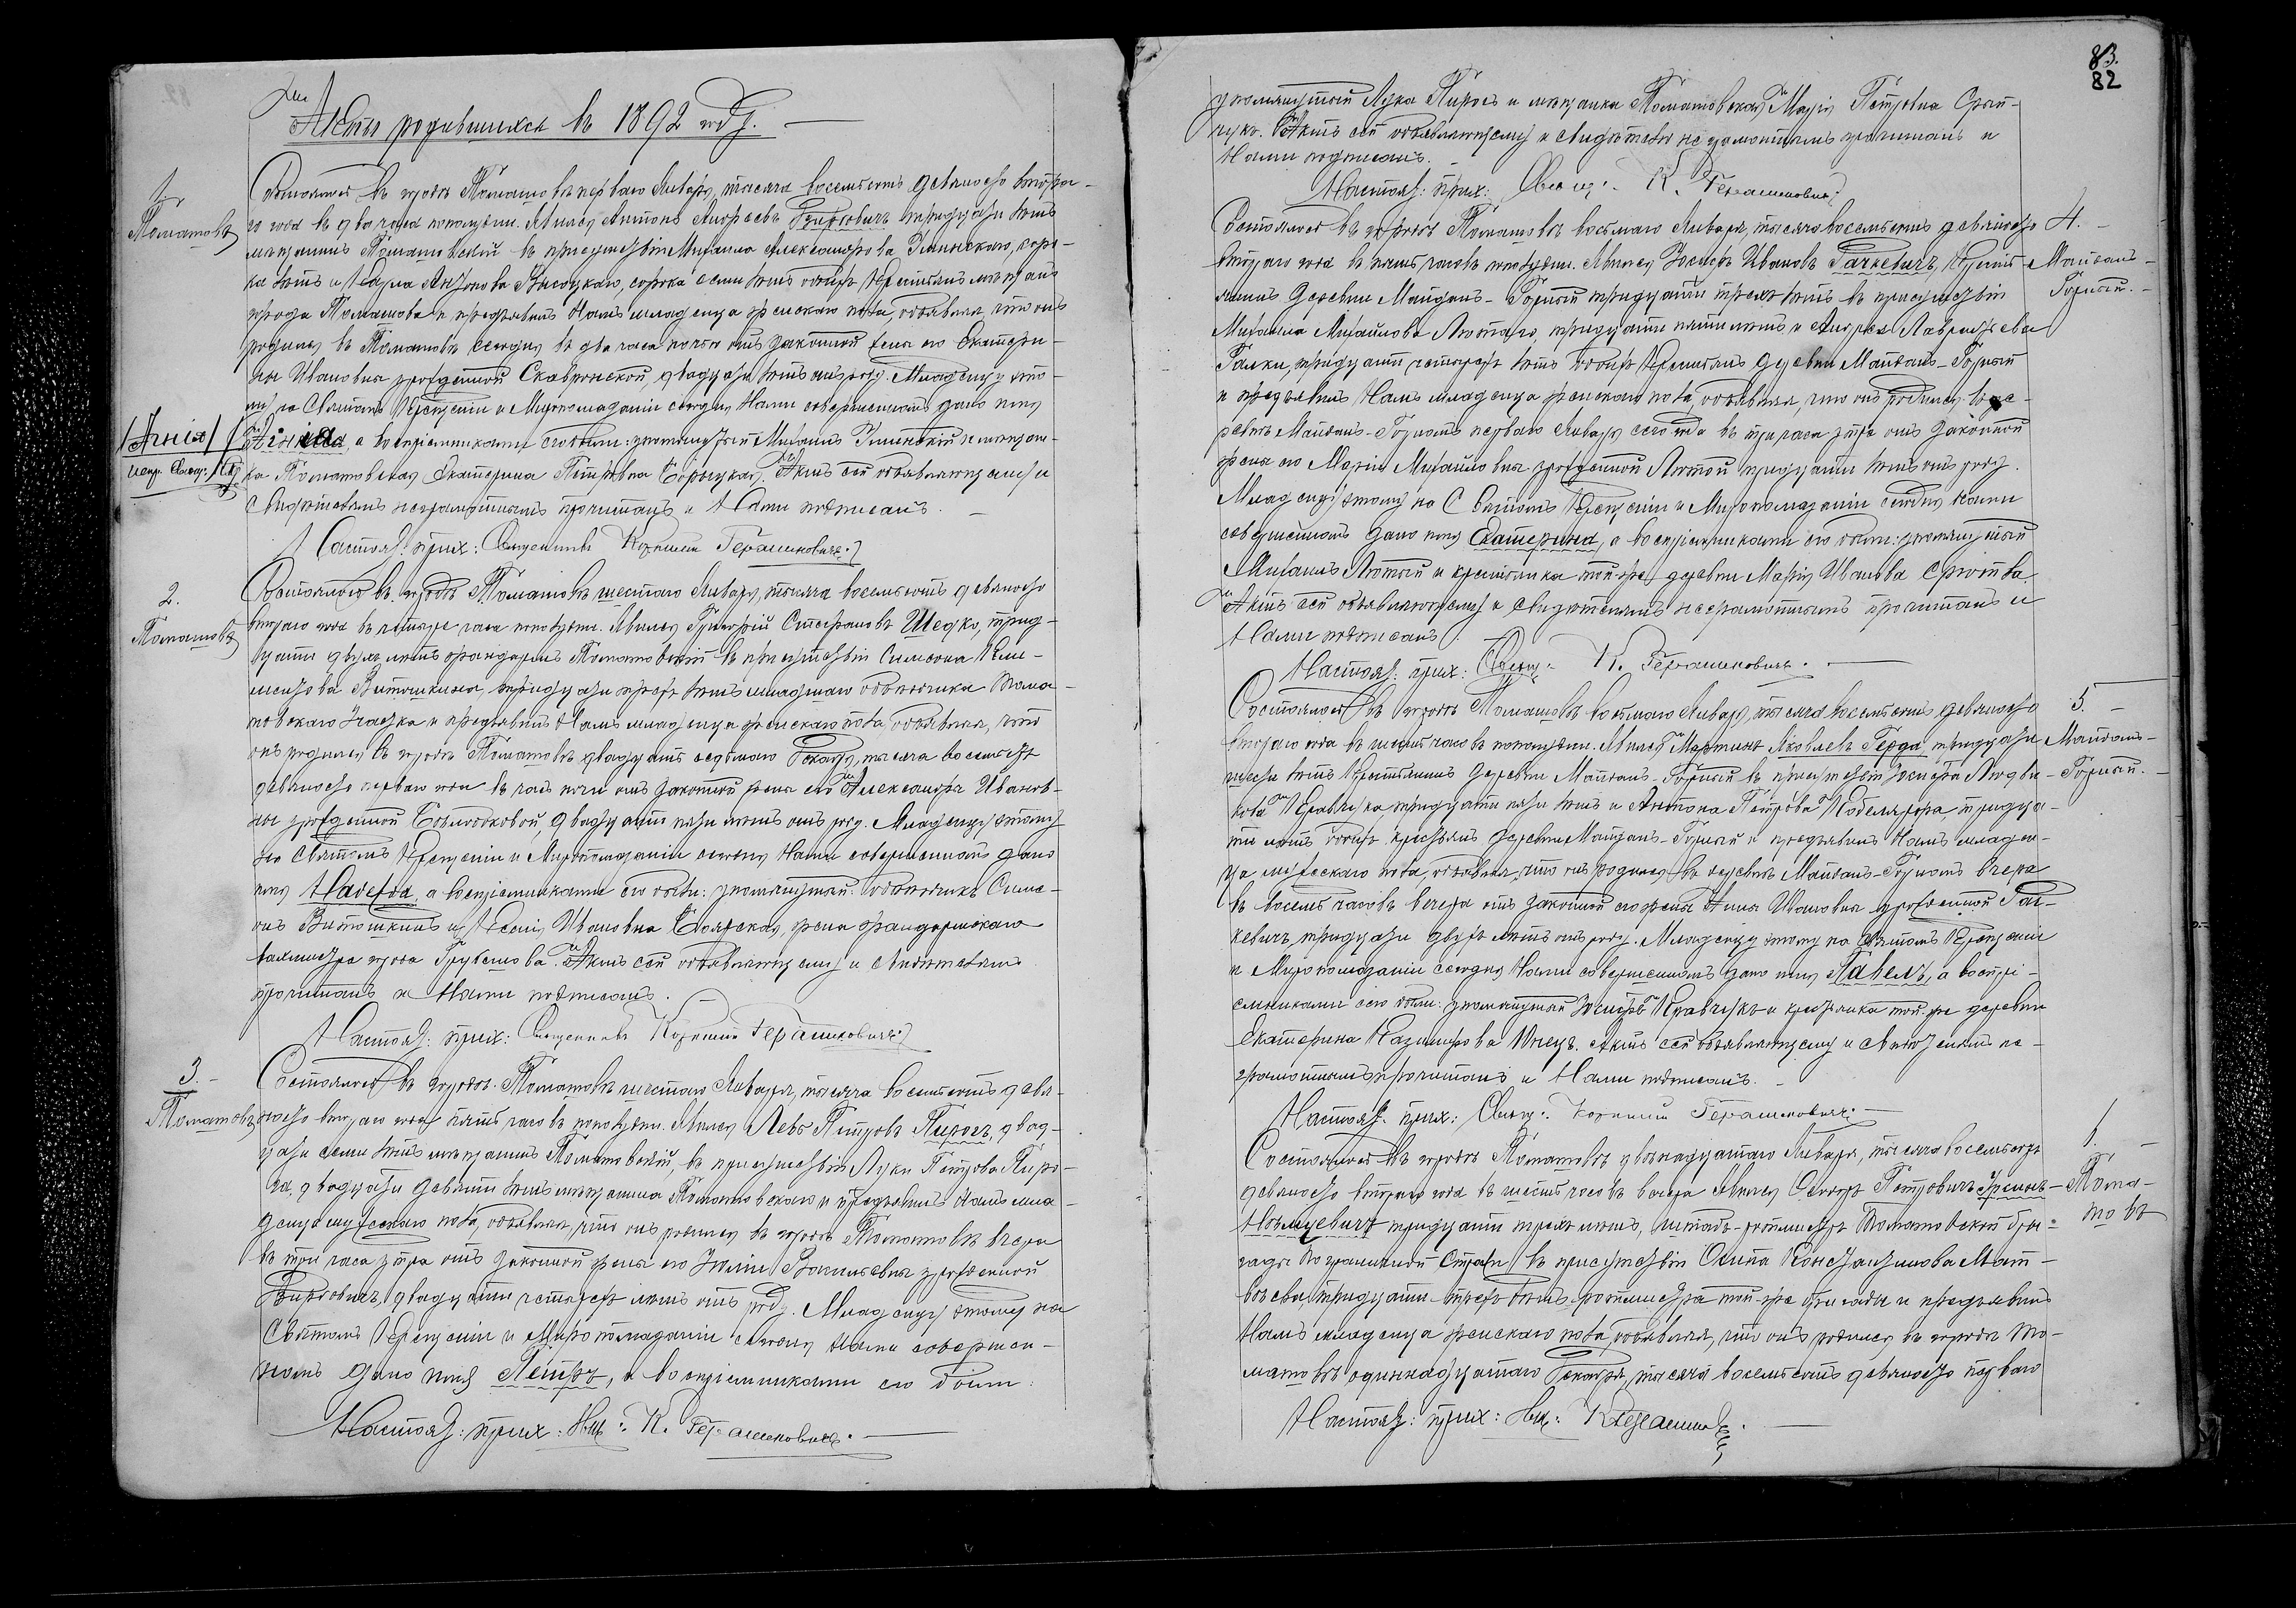 Акты родившихся въ 1892 году.
1.
Томашовъ
Состоялось въ городѣ Томашовѣ перваго Января, тысяча восемьсотъ девяносто втора-
го года въ два часа пополудни. Явился Антонъ Андреевъ тридцати лѣтъ
мѣщанинъ Томашовскій въ присутствіи Михаила Александрова соро-
ка лѣтъ и Карла Высоцкаго, сорока семи лѣтъ обоихъ мѣщанъ
города Томашова и предъявилъ Намъ младенца женскаго пола, объявляя, что онъ
родился въ Томашовѣ сегодня въ два часа ночи отъ законной жены его Екатери-
ны Ивановны урожденной Скавронской, двадцати лѣтъ отъ роду. Младенцу это-
му на Святомъ Крещеніи и Миропомазаніи сегодня Нами совершенномъ дано имя
/Агнія/
а воспріемниками его были: упомянутый Михаилъ и мѣщан-
ка Томашовская Екатерина Петровна Актъ сей объявляющему и
свидѣтелямъ неграмотнымъ прочитанъ и Нами подписанъ. -
Настоят: прих: Священникъ Корнилій Герасимовичъ.
2.
Томашовъ
Состоялось въ городѣ Томашовѣ шестаго Января, тысяча восемьсотъ девяносто
втораго года въ четыре часа пополудни. Явился Григорій Степановъ Шедко, трид-
цати двухъ лѣтъ жандармъ Томашовскій въ присутствіи Симеона
Витошкина, тридцати трехъ лѣтъ младшаго объѣздчика Тома-
шовскаго и предъявилъ Намъ младенца женскаго пола, объявляя, что
онъ родился въ городѣ Томашовѣ двадцать седьмаго Декабря, тысяча восемьсотъ
девяносто перваго года въ часъ ночи отъ законной жены его Александры Иванов-
ны урожденной двадцати пяти лѣтъ отъ роду. Младенцу этому
на Святомъ Крещеніи и Миропомазаніи сегодня Нами совершенномъ дано
имя Надежда, а воспріемниками его были: упомянутый объѣздчикъ Симе-
онъ Витошкинъ и Ивановна Боярская, жена жандармскаго
вахмистра города Грубешова. Актъ сей объявляющему и свидѣтелямъ
прочитанъ и Нами подписанъ. -
Настоят: прих: Священникъ Корнилій Герасимовичъ.
3. -
Томашовъ
Состоялось въ городѣ Томашовѣ шестаго Января, тысяча восемьсотъ девя-
носто втораго года въ пять часовъ пополудни. Явился Левъ Петровъ Пирогъ, двад-
цати семи лѣтъ мѣщанинъ Томашовскій, въ присутствіи Луки Петрова Пиро-
га, двадцати девяти лѣтъ мѣщанина Томашовскаго и предъявилъ Намъ мла-
денца мужескаго пола, объявляя, что онъ родился въ городѣ Томашовѣ вчера
въ три часа утра отъ законной жены его Юліи Васильевны урожденной
двадцати четырехъ лѣтъ отъ роду. Младенцу этому на
Святомъ Крещеніи и Миропомазаніи сегодня Нами совершен-
номъ дано имя Петръ, а воспріемниками его были:
Настоят: прих: Свящ: К. Герасимовичъ. -
83.
82
упомянутый Лука Пирогъ и мѣщанка Томашовская Марія Петровна
Актъ сей объявляющему и свидѣтелю неграмотнымъ прочитанъ и
Нами подписанъ. -
Настоят: прих: Свящ: К. Герасимовичъ
4. -
Майданъ-
Горный. -
Состоялось въ городѣ Томашовѣ восьмаго Января, тысяча восемьсотъ девяносто
втораго года въ пять часовъ пополудни. Явился Іосифъ Ивановъ Гачкевичъ, крестья-
нинъ деревни Майданъ-Горный тридцати трехъ лѣтъ въ присутствіи
Михаила Михайлова Лютаго, тридцати пяти лѣтъ и Андрея Лаврентьева
Галки, тридцати четырехъ лѣтъ обоихъ крестьянъ деревни Майданъ-Горный
и предъявилъ Намъ младенца женскаго пола, объявляя, что онъ родился въ де-
ревнѣ Майданъ-Горномъ перваго Января сего года въ три часа утра отъ законной
жены его Маріи Михайловны урожденной Лютой тридцати лѣтъ отъ роду.
Младенцу этому на Святомъ Крещеніи и Миропомазаніи сегодня Нами
совершенномъ дано имя Екатерина, а воспріемниками его были: упомянутый
Михаилъ Лютый и крестьянка той-же деревни Марія Иванова
Актъ сей объявляющему и свидѣтелямъ неграмотнымъ прочитанъ и
Нами подписанъ.
Настоят: прих: Свящ: К. Герасимовичъ. -
5. -
Майданъ-
Горный. -
Состоялось въ городѣ Томашовѣ восьмаго Января, тысяча восемьсотъ девяносто
втораго года въ шесть часовъ пополудни. Явился Мартинъ Яковлевъ Герда, тридцати
шести лѣтъ крестьянинъ деревни Майданъ-Горный въ присутствіи Іосифа Людви-
кова Кравчука, тридцати пяти лѣтъ и Антона Петрова тридца-
ти лѣтъ обоихъ крестьянъ деревни Майданъ-Горный и предъявилъ Намъ младен-
ца мужескаго пола, объявляя, что онъ родился въ деревнѣ Майданъ-Горномъ вчера
въ восемь часовъ вечера отъ законной его жены Анны Ивановны урожденной Гач-
кевичъ, тридцати двухъ лѣтъ отъ роду. Младенцу этому на Святомъ Крещеніи
и Миропомазаніи сегодня Нами совершенномъ дано имя Павелъ, а воспрі-
емниками его были: упомянутый Іосифъ Кравчукъ и крестьянка той-же деревни
Екатерина Казимірова Актъ сей объявляющему и свидѣтелямъ не-
грамотнымъ прочитанъ и Нами подписанъ. -
Настоят: прих: Свящ: Корнилій Герасимовичъ. -
Тома-
шовъ
Состоялось въ городѣ Томашовѣ двѣнадцатаго Января, тысяча восемьсотъ
девяносто втораго года въ шесть часовъ вечера Явился Петровичъ
тридцати трехъ лѣтъ, штабъ-ротмистръ Томашовской бри-
гады Пограничной Стражи въ присутствіи Осипа Константинова Мат-
вѣева, тридцати трехъ лѣтъ ротмистра той-же бригады и предъявилъ
Намъ младенца женскаго пола, объявляя, что онъ родился въ городѣ То-
машовѣ одиннадцатаго Декабря, тысяча восемьсотъ девяносто перваго
Настоят: прих: Свящ: К. Герасимовичъ. -